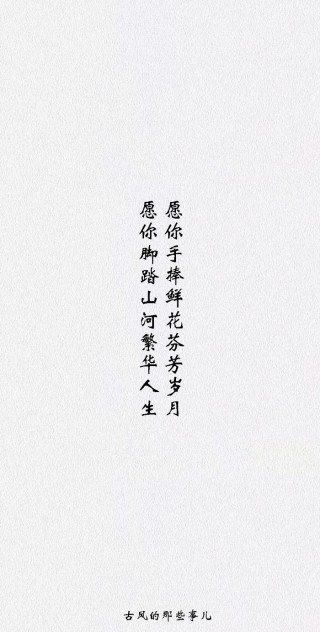 愿你手捧鲜花芬芳岁月
愿你脚踏山河繁华人生
古风的那些事儿